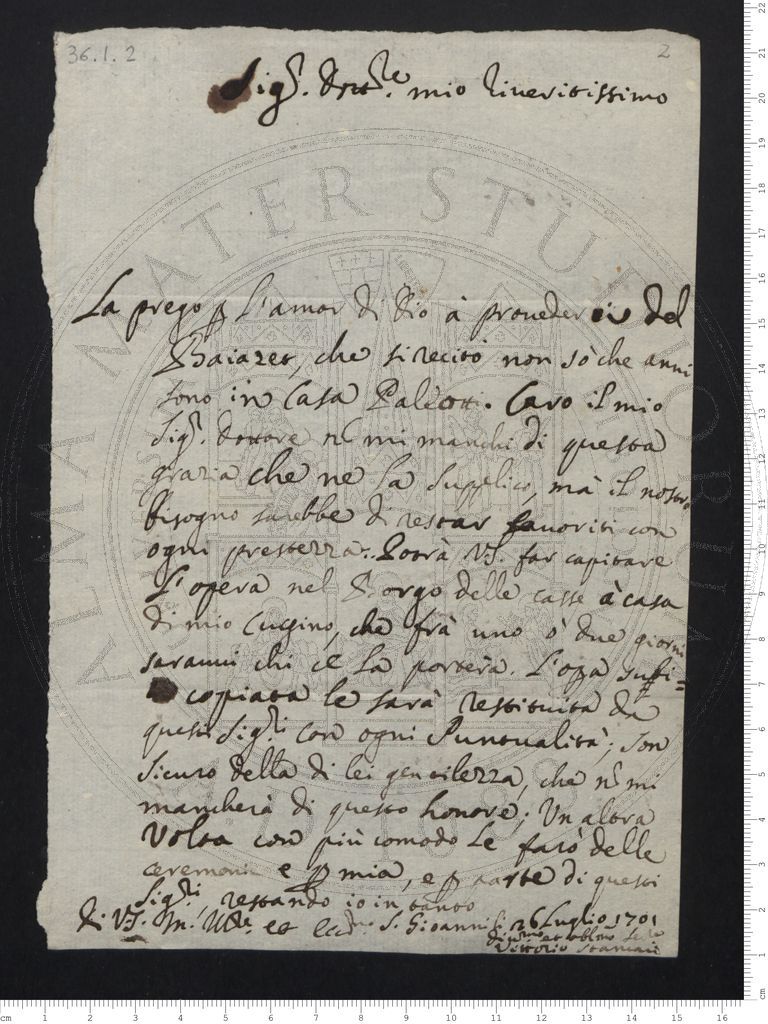 36.1.2
2
Sig.r Dott.re mio Riveritissimo
La prego p l'amor di Dio à proveder del
Baiazet, che si recitò non sò che anni
sono in Casa Paleotti. Caro il mio
Sig.r Dottore nō mi manchi di questa
grazia che ne la supplico, mà il nostro
bisogno sarebbe di restar favoriti con
ogni prestezza. Potrà VS. far capitare
l'opera nel Borgo delle casse à casa
di mio Cugino, che frà uno ò due giorni
saranui chi ce la porterà. L'opa subi=
copiata le sarà restituita da
questi Sig.ri con ogni Puntualità; son
sicuro della di lei gentilezza, che nō mi
mancherà di questo honore; Un altra
Volta con più comodo Le farò delle
ceremonie e p mia, e p parte di questi
Sig.ri, restando io in tanto
di VS. S. Giovanni li 26 Luglio 1701
Vittorio Stancari